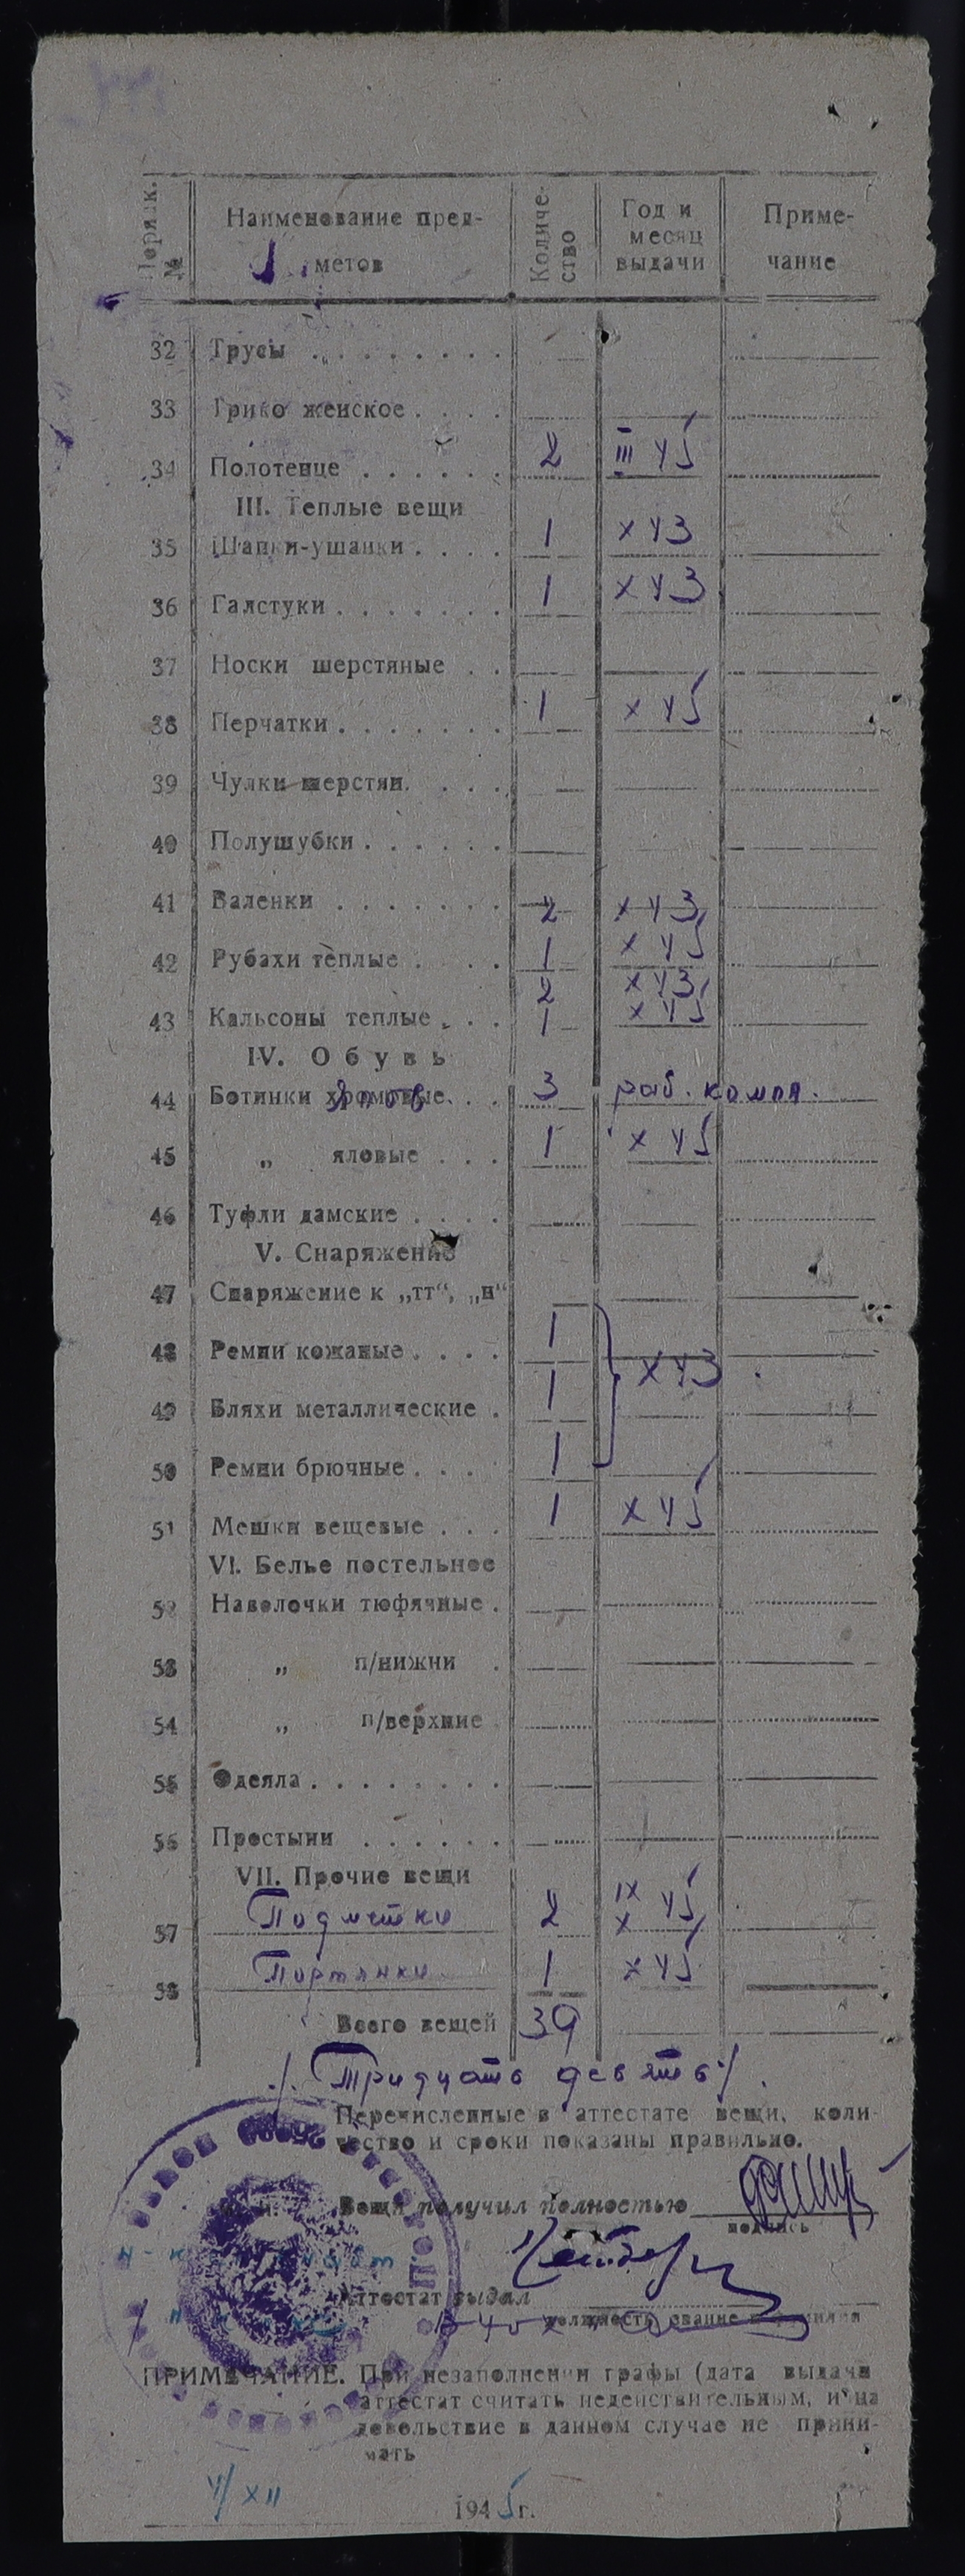 Порядк. № Наименование предметов Количество Год и месяц выдачи Примечание
32 Трусы
33 Трико женское
34 Полотенце 2 III 45
III. Теплые вещи
35 Шапки-ушанки 1 X 43
36 Галстуки 1 X 43
37 Носки шерстяные
38 Перчатки 1 X 45
39 Чулки шерстян.
40 Полушубки
41 Валенки
42 Рубахи теплые 2 X 43, 1 X 45
43 Кальсоны теплые 2 X 43, 1 X 45
IV. Обувь
44 Ботинки хромовые 3 раб. компл.
45 „ яловые 1 X 45
46 Туфли дамские
V. Снаряжение
47 Снаряжение к „тт“, „н“
48 Ремни кожаные 1
49 Бляхи металлические 1 X 43
50 Ремни брючные 1
51 Мешки вещевые 1 X 45
VI. Белье постельное
52 Наволочки тюфячные
53 „ п/нижни
54 „ п/верхние
55 Одеяла
56 Простыни
VII. Прочие вещи
57 Подметки 2 IX X 45
58 Портянки 1 X 45
Всего вещей 39
/. Тридцать девять /.
Перечисленные в аттестате вещи, коли-
чество и сроки показаны правильно.
Вещи получил полностью
подпись
Аттестат выдал
должность, звание
ПРИМЕЧАНИЕ. При незаполнении графы (дата выдачи
аттестат считать недействительным, и на
довольствие в данном случае не прини-
мать
4/XII 1945 г.